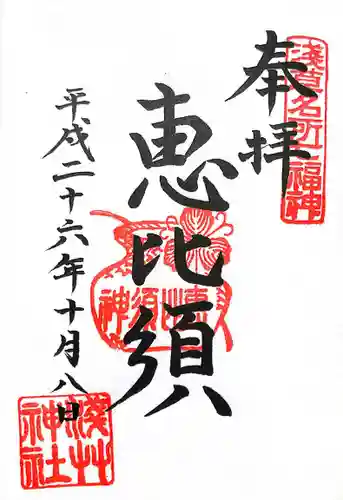 奉拝
浅草名所七福神
恵比須
恵比須神
平成二十六年十月八日
浅草神社